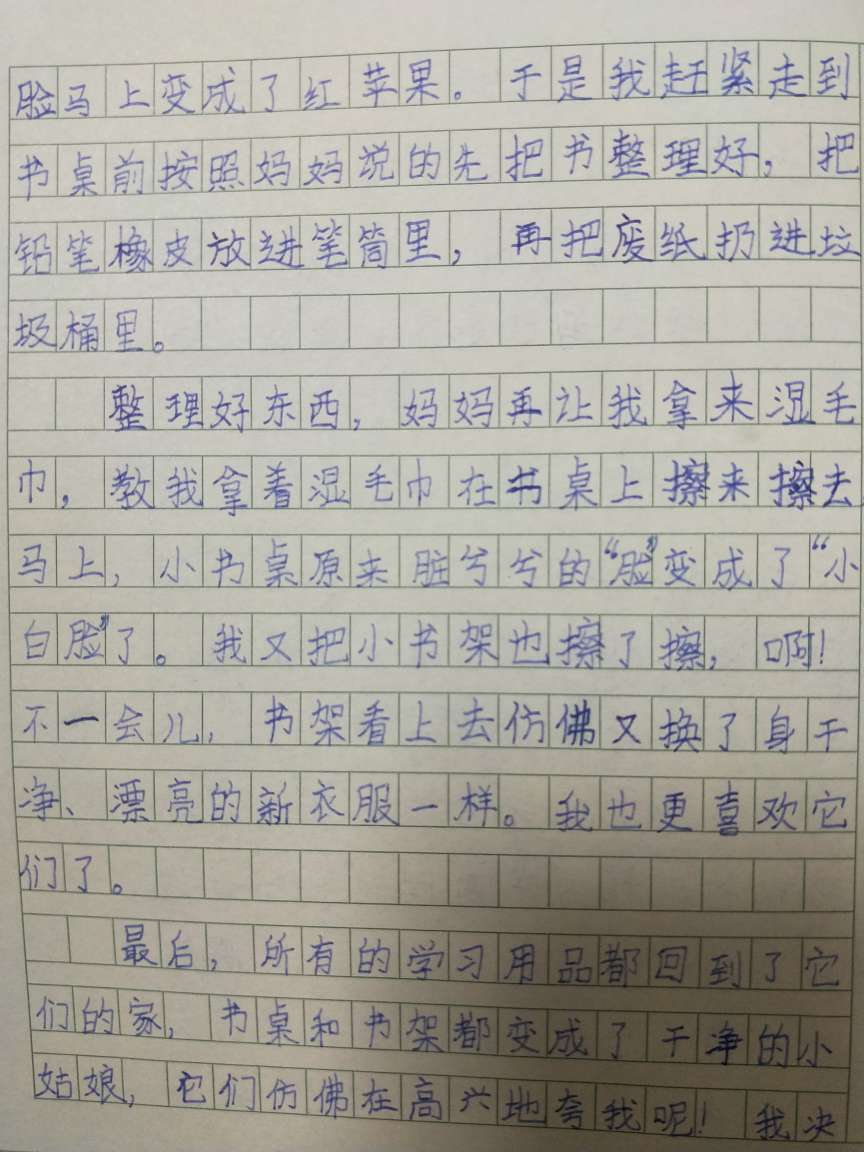 脸马上变成了红苹果。于是我赶紧走到
书桌前按照妈妈说的先把书整理好，把
铅笔橡皮放进笔筒里，再把废纸扔进垃
圾桶里。
整理好东西，妈妈再让我拿来湿毛
巾，教我拿着湿毛巾在书桌上擦来擦去
马上，小书桌原来脏兮兮的“脸”变成了“小
白脸”了。我又把小书架也擦了擦，啊！
不一会儿，书架看上去仿佛又换了身干
净、漂亮的新衣服一样。我也更喜欢它
们了。
最后，所有的学习用品都回到了它
们的家，书桌和书架都变成了干净的小
姑娘，它们仿佛在高兴地夸我呢！我决